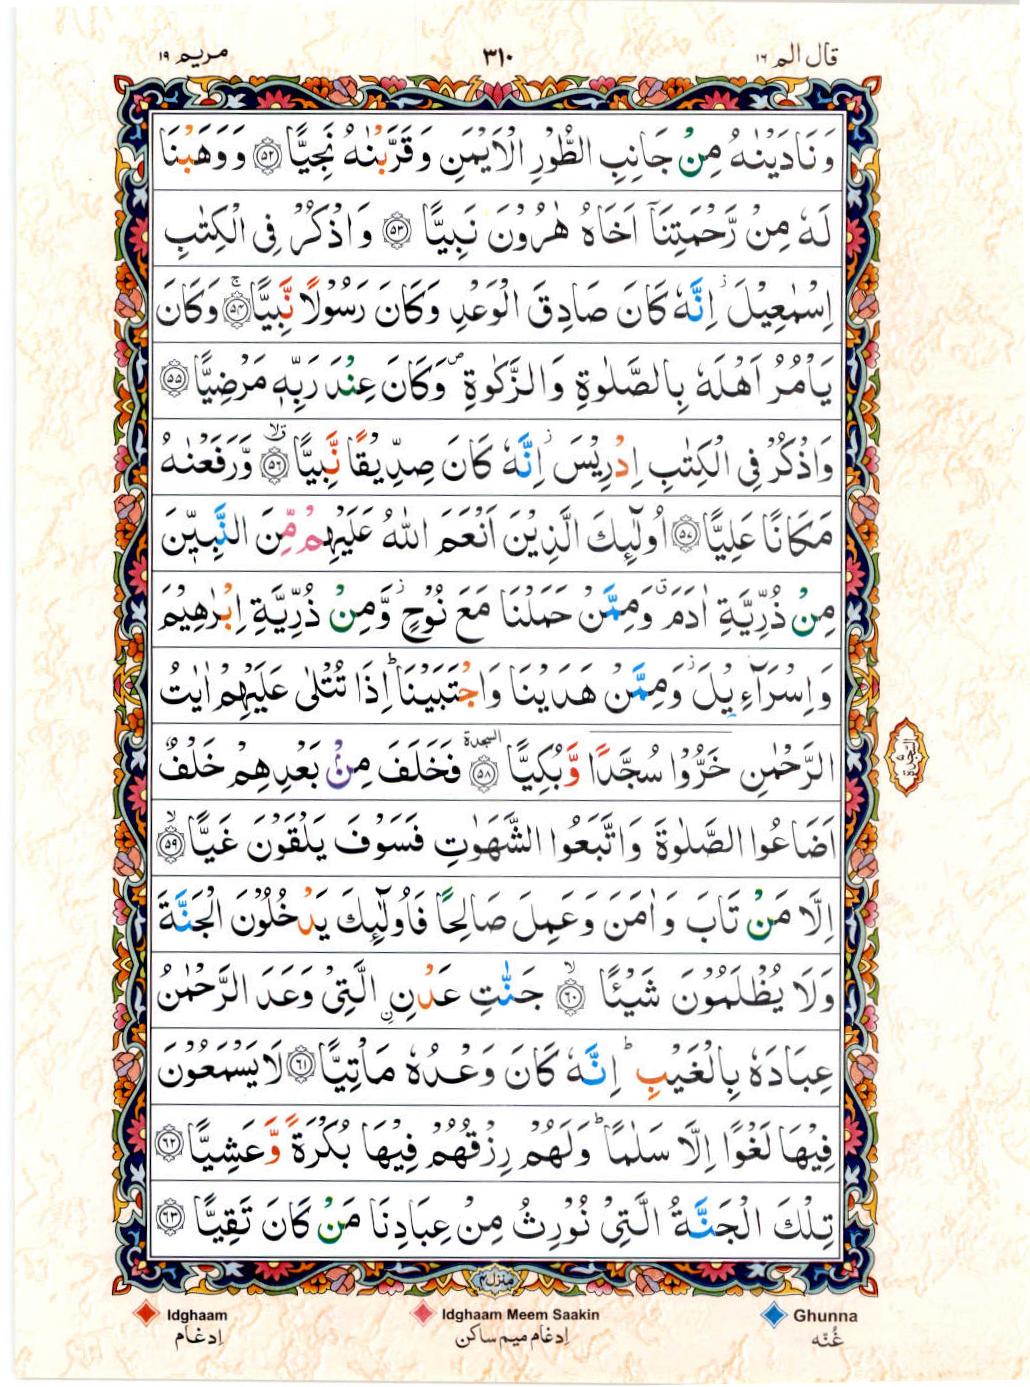 قال الم ١٦
٣١٠
مريم ١٩
وَنَادَيْنٰهُ مِنْ جَانِبِ الطُّوْرِ الْاَيْمَنِ وَقَرَّبْنٰهُ نَجِيًّا ﴿٥٢﴾ وَوَهَبْنَا
لَهٗ مِنْ رَّحْمَتِنَاۤ اَخَاهُ هٰرُوْنَ نَبِيًّا ﴿٥٣﴾ وَاذْكُرْ فِى الْكِتٰبِ
اِسْمٰعِيْلَ ز اِنَّهٗ كَانَ صَادِقَ الْوَعْدِ وَكَانَ رَسُوْلًا نَّبِيًّا ﴿٥٤﴾ ۚ وَكَانَ
يَاْمُرُ اَهْلَهٗ بِالصَّلٰوةِ وَالزَّكٰوةِ ص وَكَانَ عِنْدَ رَبِّهٖ مَرْضِيًّا ﴿٥٥﴾
وَاذْكُرْ فِى الْكِتٰبِ اِدْرِيْسَ ز اِنَّهٗ كَانَ صِدِّيْقًا نَّبِيًّا ﴿٥٦﴾ وَّرَفَعْنٰهُ
مَكَانًا عَلِيًّا ﴿٥٧﴾ اُولٰٓئِكَ الَّذِيْنَ اَنْعَمَ اللّٰهُ عَلَيْهِمْ مِّنَ النَّبِيّٖنَ
مِنْ ذُرِّيَّةِ اٰدَمَ ق وَمِمَّنْ حَمَلْنَا مَعَ نُوْحٍ ز وَّمِنْ ذُرِّيَّةِ اِبْرٰهِيْمَ
وَاِسْرَآءِيْلَ ز وَمِمَّنْ هَدَيْنَا وَاجْتَبَيْنَا ؕ اِذَا تُتْلٰى عَلَيْهِمْ اٰيٰتُ
الرَّحْمٰنِ خَرُّوْا سُجَّدًا وَّبُكِيًّا ﴿٥٨﴾ السجدة فَخَلَفَ مِنْۢ بَعْدِهِمْ خَلْفٌ
السجدة ٥
اَضَاعُوا الصَّلٰوةَ وَاتَّبَعُوا الشَّهَوٰتِ فَسَوْفَ يَلْقَوْنَ غَيًّا ﴿٥٩﴾ ۙ
اِلَّا مَنْ تَابَ وَاٰمَنَ وَعَمِلَ صَالِحًا فَاُولٰٓئِكَ يَدْخُلُوْنَ الْجَنَّةَ
وَلَا يُظْلَمُوْنَ شَيْئًا ﴿٦٠﴾ ۙ جَنّٰتِ عَدْنِ ۨالَّتِىْ وَعَدَ الرَّحْمٰنُ
عِبَادَهٗ بِالْغَيْبِ ؕ اِنَّهٗ كَانَ وَعْدُهٗ مَاْتِيًّا ﴿٦١﴾ لَا يَسْمَعُوْنَ
فِيْهَا لَغْوًا اِلَّا سَلٰمًا ؕ وَلَهُمْ رِزْقُهُمْ فِيْهَا بُكْرَةً وَّعَشِيًّا ﴿٦٢﴾
تِلْكَ الْجَنَّةُ الَّتِىْ نُوْرِثُ مِنْ عِبَادِنَا مَنْ كَانَ تَقِيًّا ﴿٦٣﴾
منزل ٤
Idghaam
Idghaam Meem Saakin
Ghunna
اِدغام
اِدغام ميم ساكن
غُنّه